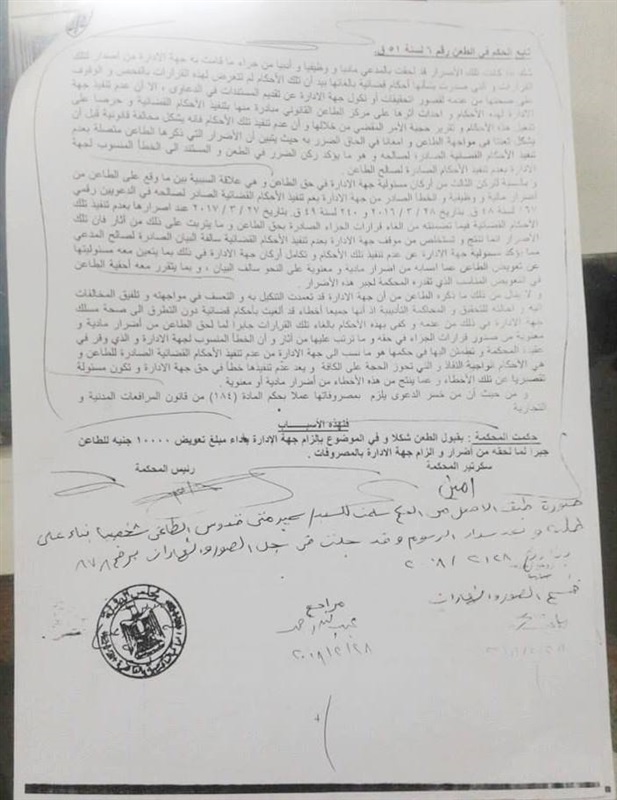 تابع الحكم في الطعن رقم ٦ لسنة ٥١ ق.
كانت تلك الأضرار قد لحقت بالمدعي ماديا و وظيفيا و أدبيا من جراء ما قامت به جهة الادارة من اصدار لتلك
القرارات و التي صدرت بشأنها أحكام قضائية بالغائها بيد أن تلك الأحكام لم تتعرض لهذه القرارات بالفحص و الوقوف
على صحتها من عدمه لقصور التحقيقات أو نكول جهة الادارة عن تقديم المستندات في الدعاوى ، الا أن عدم تنفيذ جهة
الادارة لهذه الأحكام و احداث أثرها على مركز الطاعن القانوني مبادرة منها بتنفيذ الأحكام القضائية و حرصا على
تفعيل هذه الأحكام و تقرير حجية الأمر المقضي من خلالها و أن عدم تنفيذ تلك الأحكام فانه يشكل مخالفة قانونية قبل أن
يشكل تعنتا في مواجهة الطاعن و امعانا في الحاق الضرر به حيث يتبين أن الأضرار التي ذكرها الطاعن متصلة بعدم
تنفيذ الأحكام القضائية الصادرة لصالحه و هو ما يؤكد ركن الضرر في الطعن و المستند الى الخطأ المنسوب لجهة
الادارة بعدم تنفيذ الأحكام الصادرة لصالح الطاعن .
و بالنسبة للركن الثالث من أركان مسئولية جهة الادارة في حق الطاعن و هي علاقة السببية بين ما وقع على الطاعن من
أضرار مادية و وظيفية و الخطا الصادر من جهة الادارة بعدم تنفيذ الأحكام القضائية الصادر لصالحه في الدعويين رقمي
١٦٧ لسنة ٤٨ ق. بتاريخ ٢٨ / ٣ / ٢٠١٦ و ٢٤٠ لسنة ٤٩ ق. بتاريخ ٢٧ / ٣ / ٢٠١٧ عند اصرارها بعدم تنفيذ تلك
الأحكام القضائية فيما تضمنته من الغاء قرارات الجزاء الصادرة بحق الطاعن و ما يترتب على ذلك من آثار فان تلك
الأضرار انما تنتج و تستخلص من موقف جهة الادارة بعدم تنفيذ الأحكام القضائية سالفة البيان الصادرة لصالح المدعي
مما يؤكد مسئولية جهة الادارة عن عدم تنفيذ تلك الأحكام و تكامل أركان جهة الادارة في ذلك بما يتعين معه مسئوليتها
عن تعويض الطاعن عما أصابه من أضرار مادية و معنوية على النحو سالف البيان ، و بما يتقرر معه أحقية الطاعن
في التعويض المناسب الذي تقدره المحكمة لجبر هذه الأضرار .
و لا ينال من ذلك ما ذكره الطاعن من أن جهة الادارة قد تعمدت التنكيل به و التعسف في مواجهته و تلفيق المخالفات
اليه و احالته للتحقيق و المحاكمة التأديبية اذ أنها جميعا أخطاء قد ألغيت بأحكام قضائية دون التطرق الى صحة مسلك
جهة الادارة في ذلك من عدمه و كفى بهذه الأحكام بالغاء تلك القرارات جابرا لما لحق الطاعن من أضرار مادية و
معنوية من صدور قرارات الجزاء في حقه و ما ترتب عليها من آثار و أن الخطأ المنسوب لجهة الادارة و الذي وقر في
عقيدة المحكمة و تطمئن اليها في حكمها هو ما نسب الى جهة الادارة من عدم تنفيذ الأحكام القضائية الصادرة للطاعن و
هي الأحكام الواجبة النفاذ و التي تحوز الحجة على الكافة و يعد عدم تنفيذها خطأ في حق جهة الادارة و تكون مسئولة
تقصيريا عن تلك الأخطاء و عما ينتج من هذه الأخطاء من أضرار مادية أو معنوية .
و من حيث أن من خسر الدعوى يلزم بمصروفاتها عملا بحكم المادة (١٨٤) من قانون المرافعات المدنية و
التجارية
فلهذه الأسباب
حكمت المحكمة : بقبول الطعن شكلا و في الموضوع بالزام جهة الادارة بأداء مبلغ تعويض ١٠٠٠٠ جنيه للطاعن
جبرا لما لحقه من أضرار و الزام جهة الادارة بالمصروفات .
سكرتير المحكمة رئيس المحكمة
صورة طبق الاصل من الحكم سلمت للسيد/ سمير متى قدوس الطاعن شخصيا بناء على
طلبه و بعد سداد الرسوم و قد سجلت في سجل الصور والشهادات برقم ٨٧٨
قسم الصور والشهادات
مراجع
٢٠١٨/٢/٢٨
مجلس الدولة